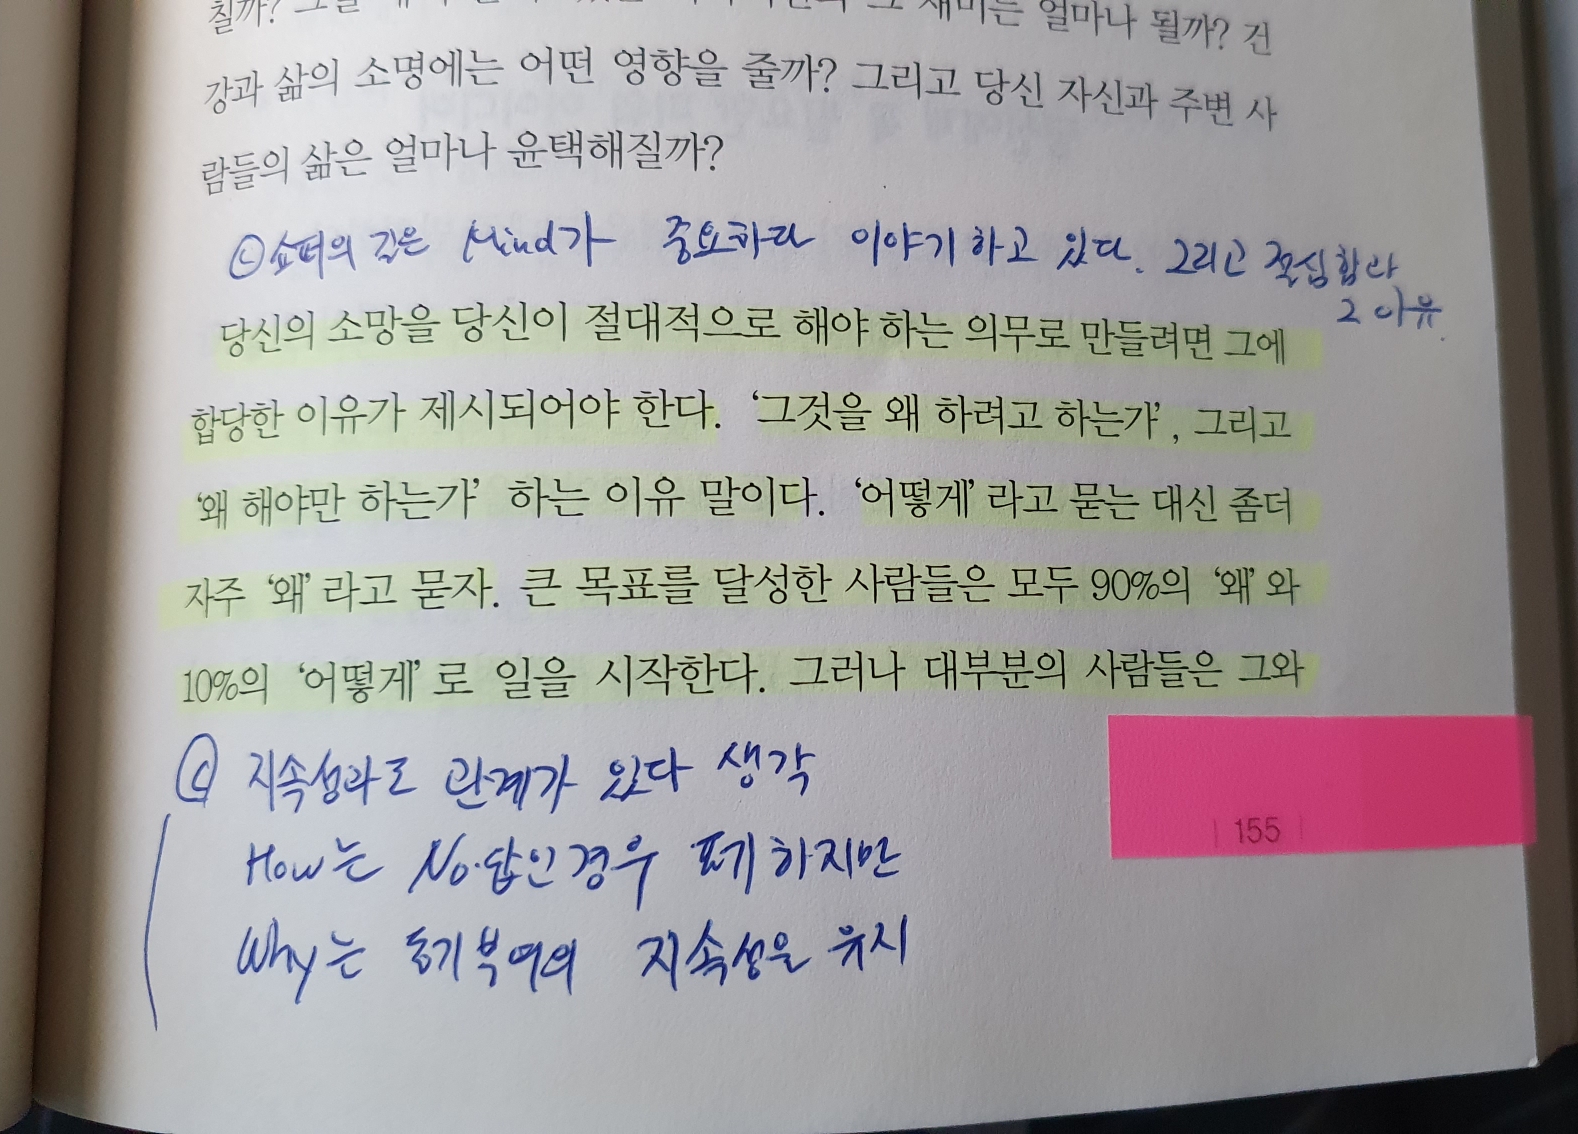 강과 삶의 소명에는 어떤 영향을 줄까? 그리고 당신 자신과 주변 사
람들의 삶은 얼마나 윤택해질까?
ⓒ 쇼퍼의 깊은 Mind가 중요하다 이야기하고 있다. 그리고
그 이유
당신의 소망을 당신이 절대적으로 해야 하는 의무로 만들려면 그에
합당한 이유가 제시되어야 한다. ‘그것을 왜 하려고 하는가’, 그리고
‘왜 해야만 하는가’ 하는 이유 말이다. ‘어떻게’ 라고 묻는 대신 좀더
자주 ‘왜’ 라고 묻자. 큰 목표를 달성한 사람들은 모두 90%의 ‘왜’ 와
10%의 ‘어떻게’ 로 일을 시작한다. 그러나 대부분의 사람들은 그와
ⓒ 지속성과도 관계가 있다 생각
How는 No.답인 경우 포기하지만
Why는 동기부여의 지속성을 유지
| 155 |